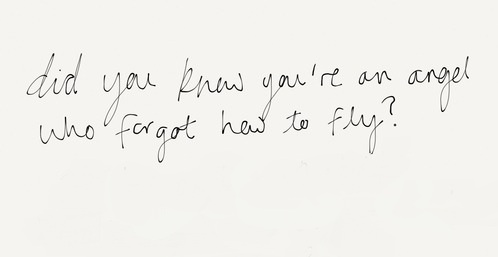 did you know you're an angel
who forgot how to fly?